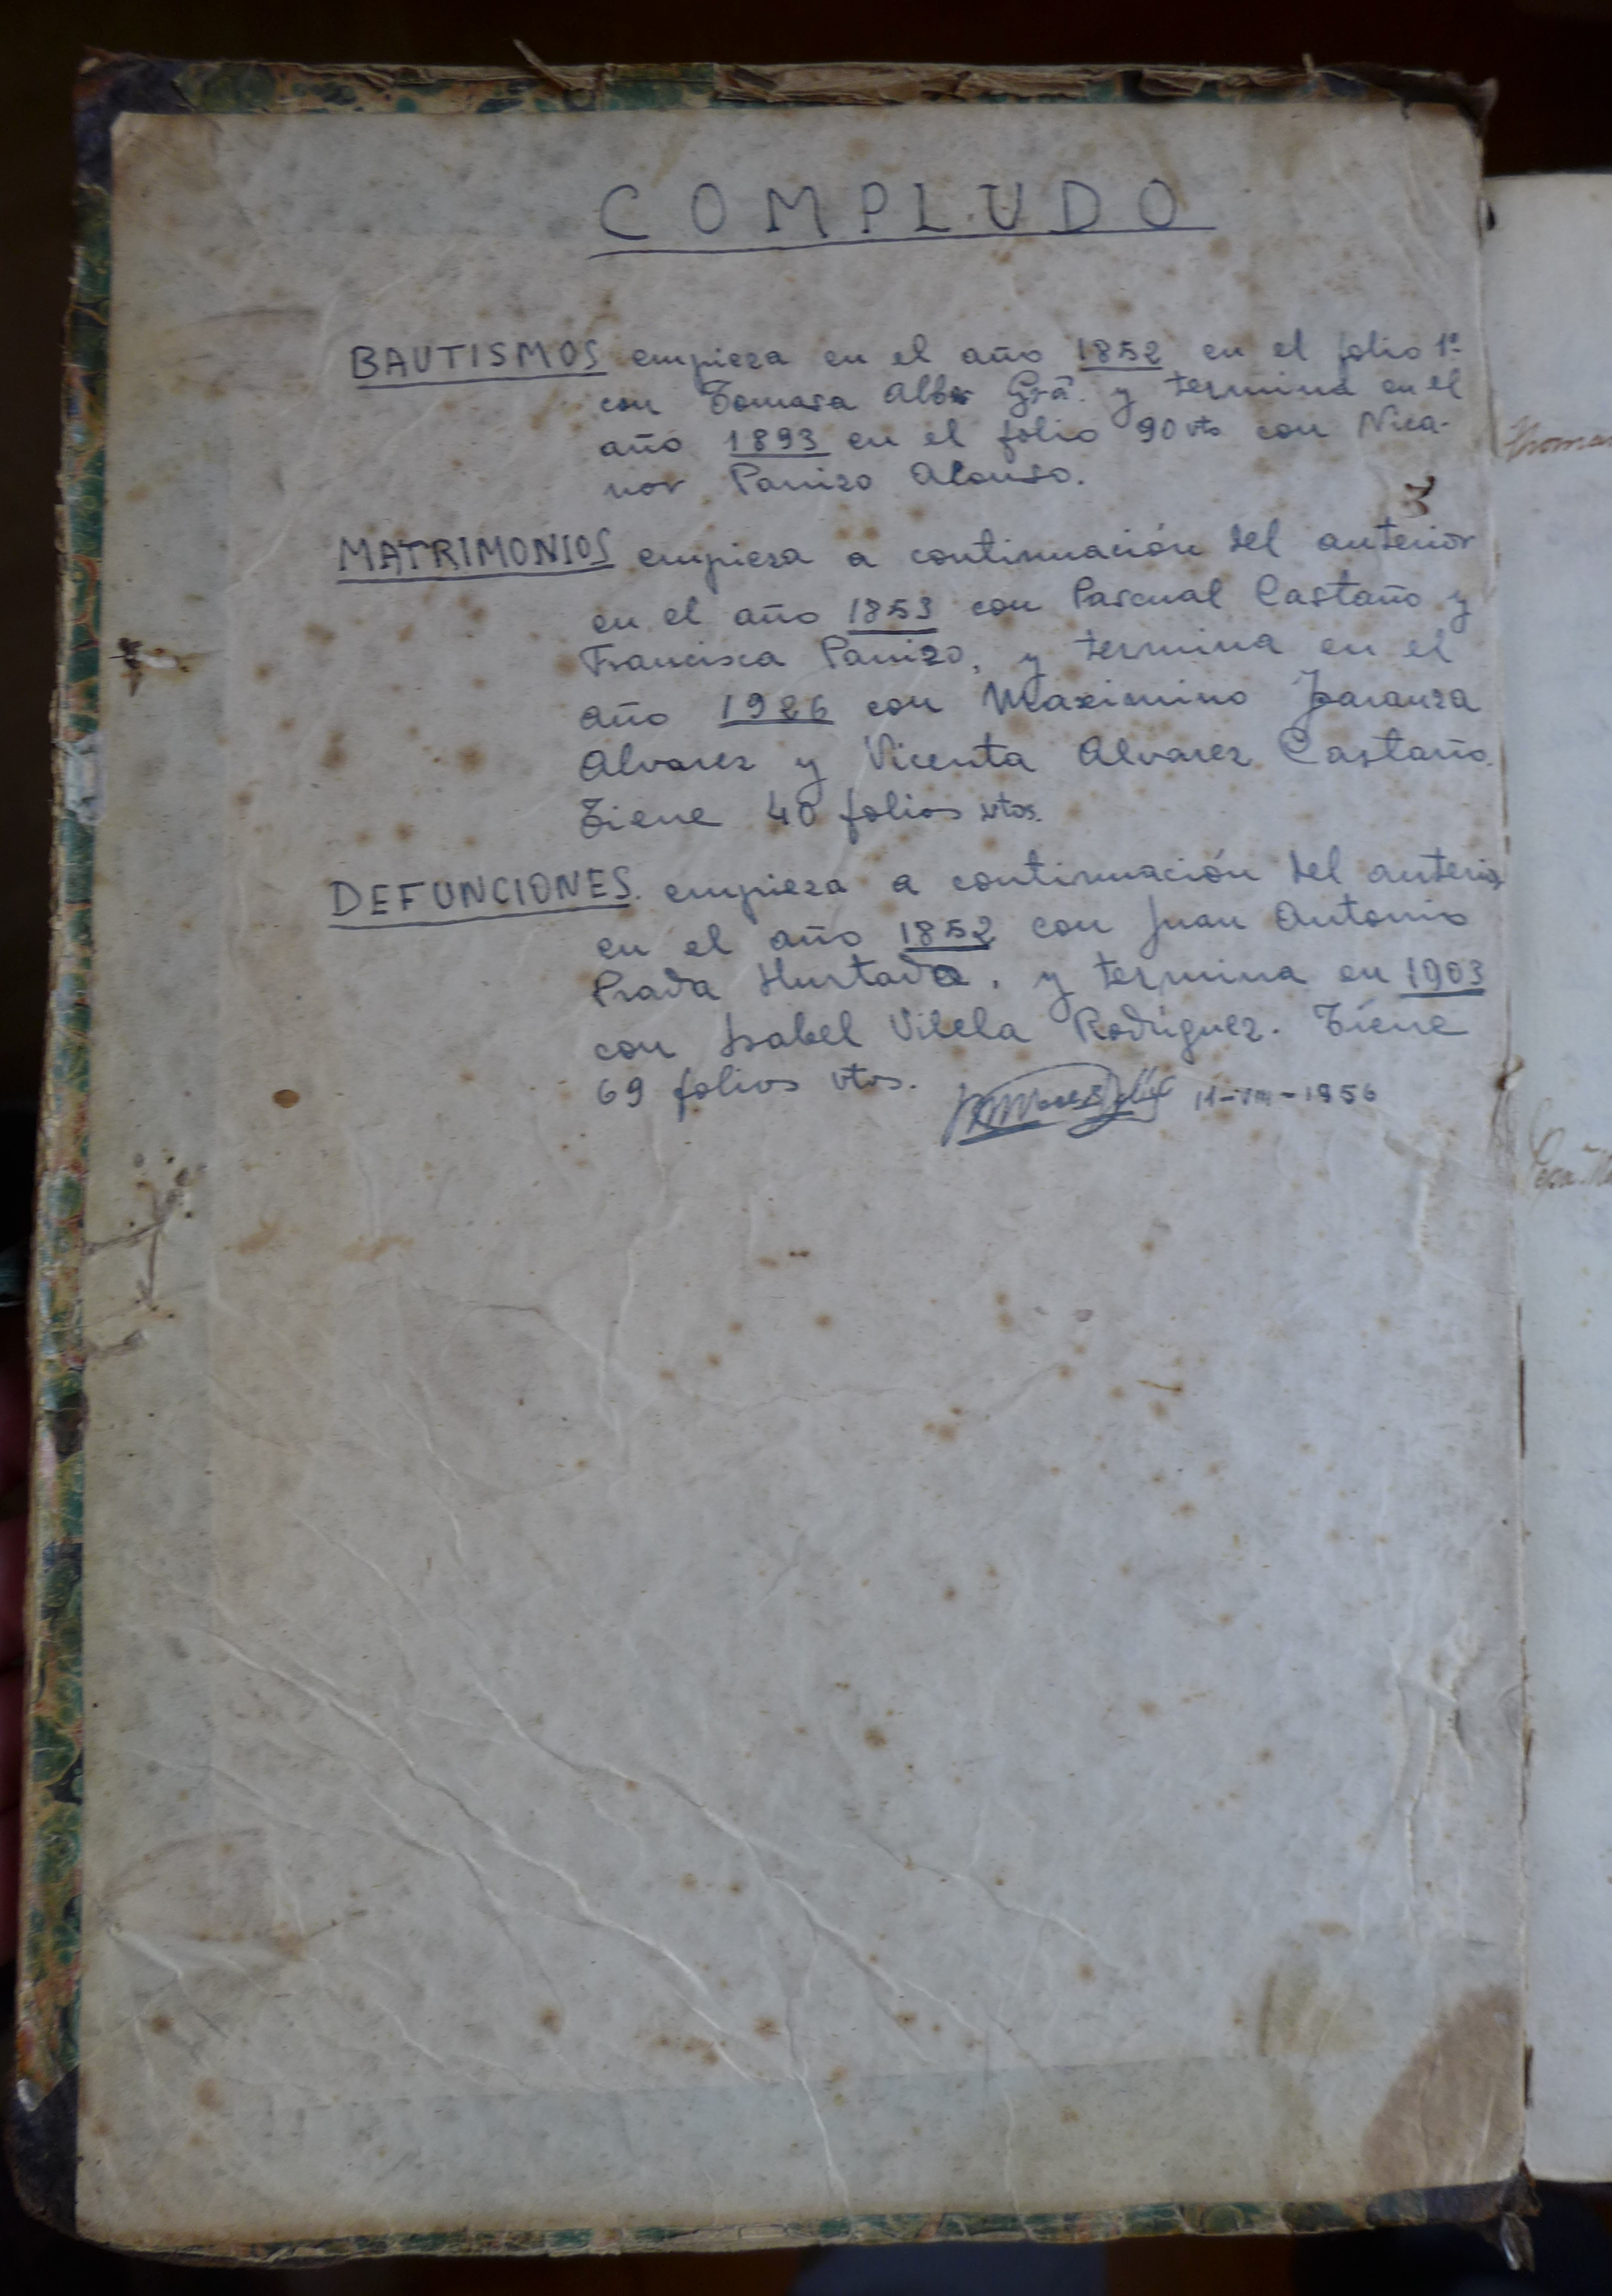 COMPLUDO
BAUTISMOS empieza en el año 1852 en el folio 1º
con Tomasa Albar Grã. y termina en el
año 1893 en el folio 90 vto con Nica-
nor Panizo Alonso.
3
MATRIMONIOS empieza a continuación del anterior
en el año 1853 con Pascual Castaño y
Francisca Panizo, y termina en el
año 1926 con Maximino
Alvarez y Vicenta Alvarez Castaño.
Tiene 40 folios vtos.
DEFUNCIONES. empieza a continuación del anterior
en el año 1852 con Juan Antonio
Prada Hurtado, y termina en 1903
con Isabel Vilela Rodríguez. Tiene
69 folios vtos.
11-VIII-1956